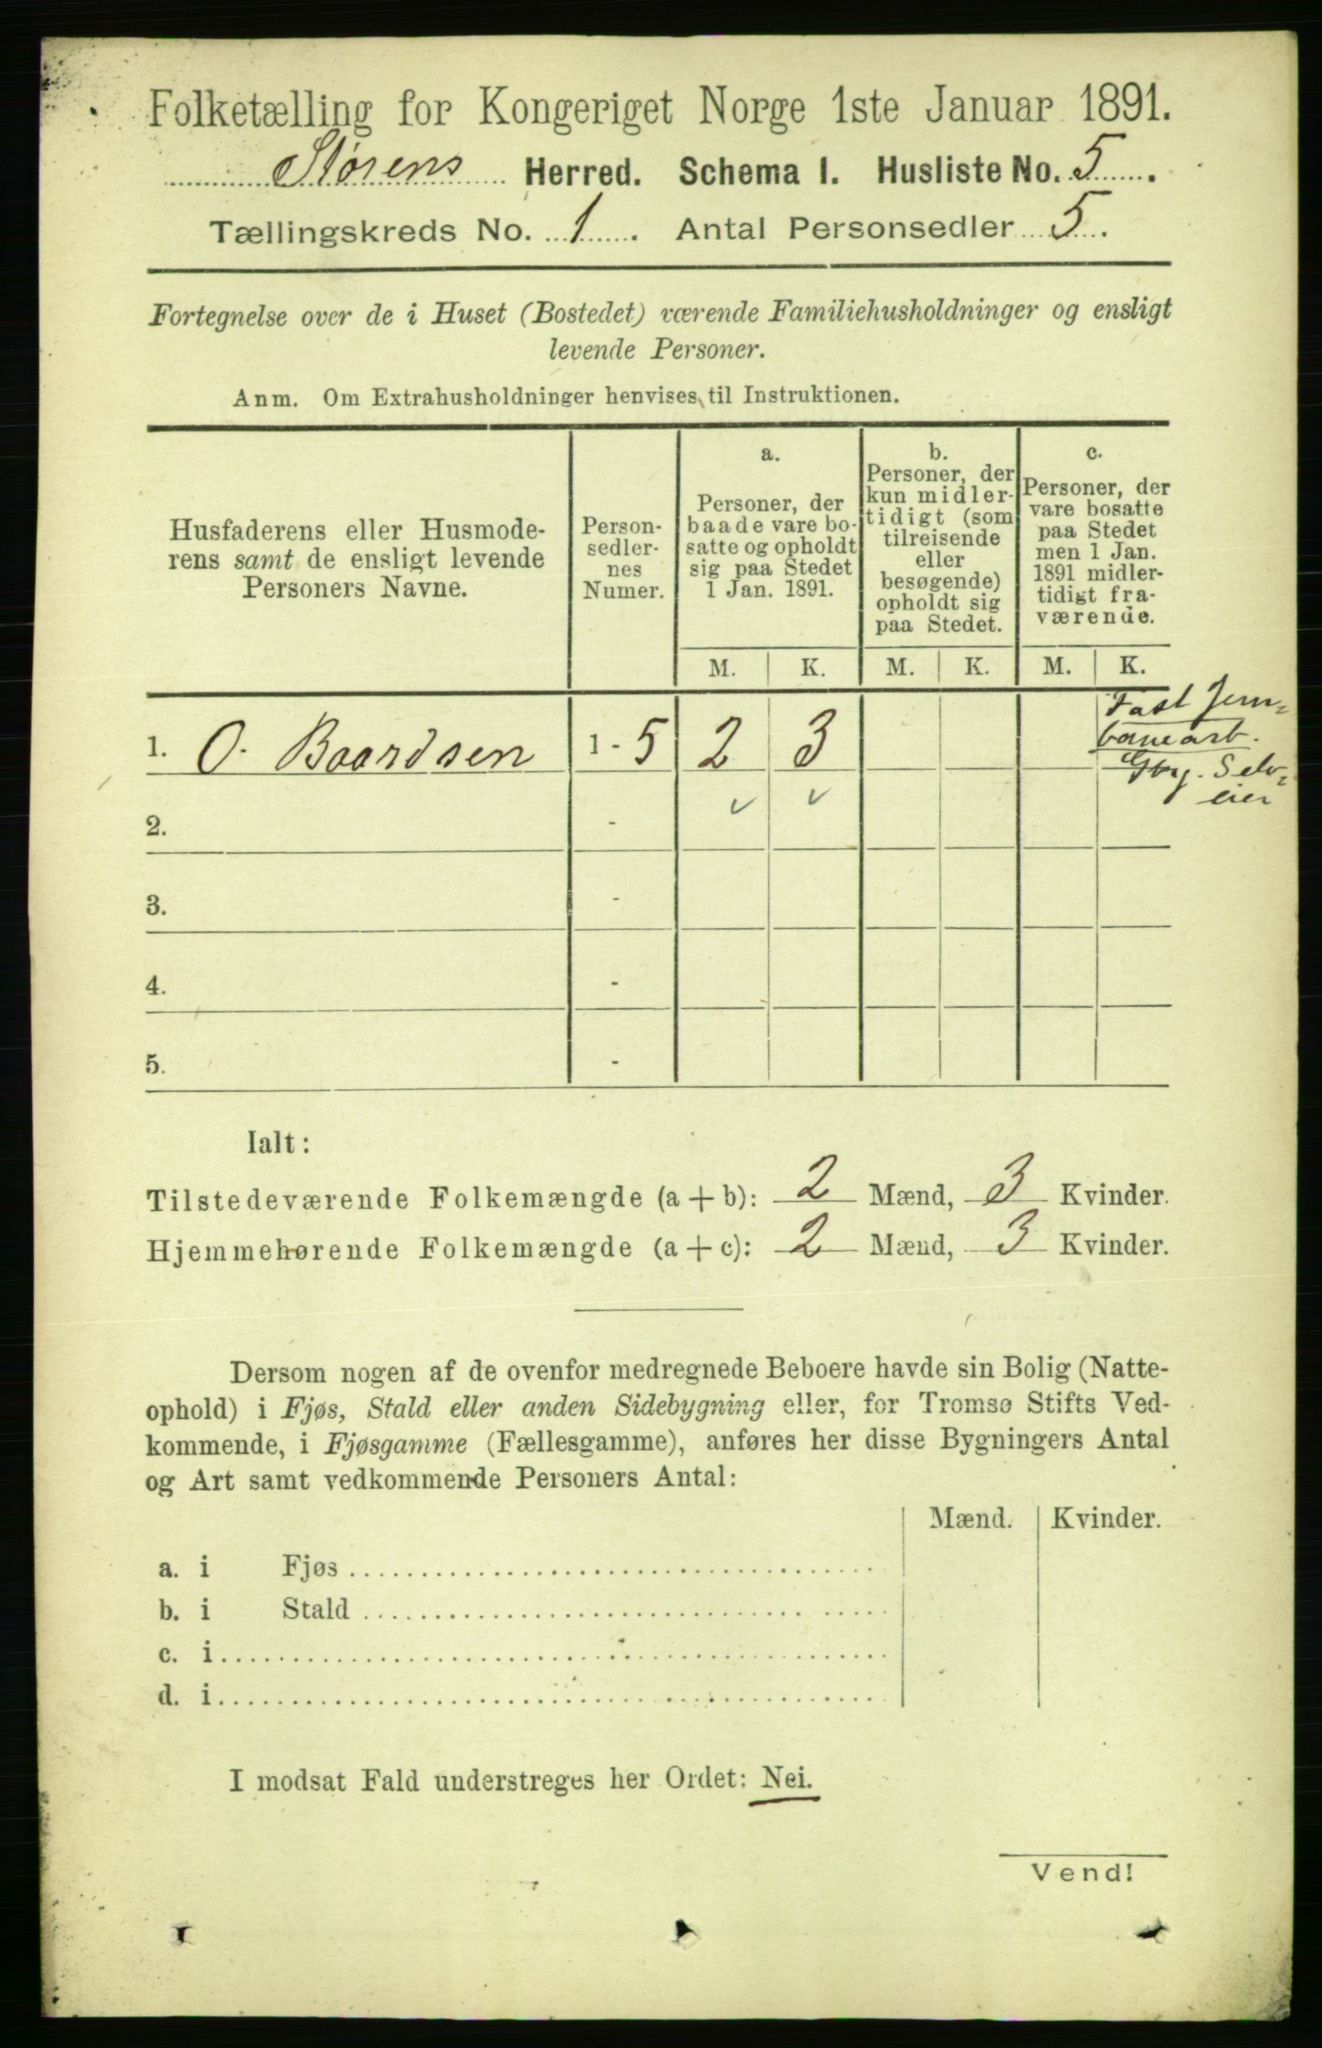 Folketælling for Kongeriget Norge 1ste Januar 1891.
Størens Herred. Schema I. Husliste No. 5.
Tællingskreds No. 1. Antal Personsedler 5.
Fortegnelse over de i Huset (Bostedet) værende Familiehusholdninger og ensligt
levende Personer.
Anm. Om Extrahusholdninger henvises til Instruktionen.
Husfaderens eller Husmode-
rens samt de ensligt levende
Personers Navne.
Person-
sedler-
nes
Numer.
a.
Personer, der
baade vare bo-
satte og opholdt
sig paa Stedet
1 Jan. 1891.
b.
Personer, der
kun midler-
tidigt (som
tilreisende
eller
besøgende)
opholdt sig
paa Stedet.
c.
Personer, der
vare bosatte
paa Stedet
men 1 Jan.
1891 midler-
tidigt fra-
værende.
M. K. M. K. M. K.
1. O. Baardsen 1 - 5 2 3
Fast Jern-
banearb.
Gbr. Selv-
eier
2. -
3. -
4. -
5. -
Ialt:
Tilstedeværende Folkemængde (a + b): 2 Mænd, 3 Kvinder.
Hjemmehørende Folkemængde (a + c): 2 Mænd, 3 Kvinder.
Dersom nogen af de ovenfor medregnede Beboere havde sin Bolig (Natte-
ophold) i Fjøs, Stald eller anden Sidebygning eller, for Tromsø Stifts Ved-
kommende, i Fjøsgamme (Fællesgamme), anføres her disse Bygningers Antal
og Art samt vedkommende Personers Antal:
Mænd. Kvinder.
a. i Fjøs
b. i Stald
c. i
d. i
I modsat Fald understreges her Ordet: Nei.
Vend!